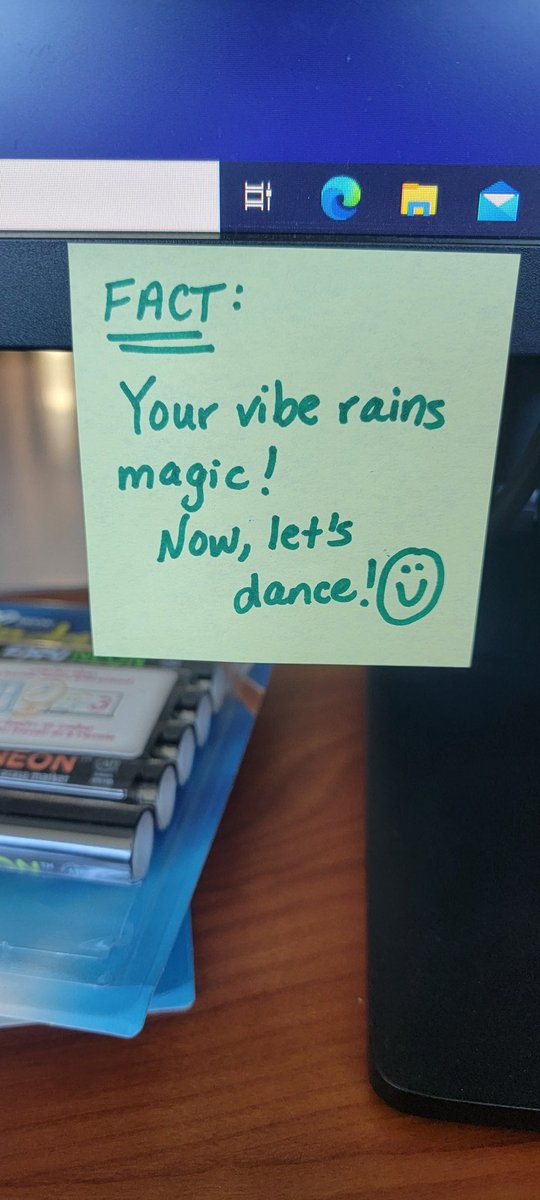 FACT:
Your vibe rains
magic!
Now, let's
dance!
NEON